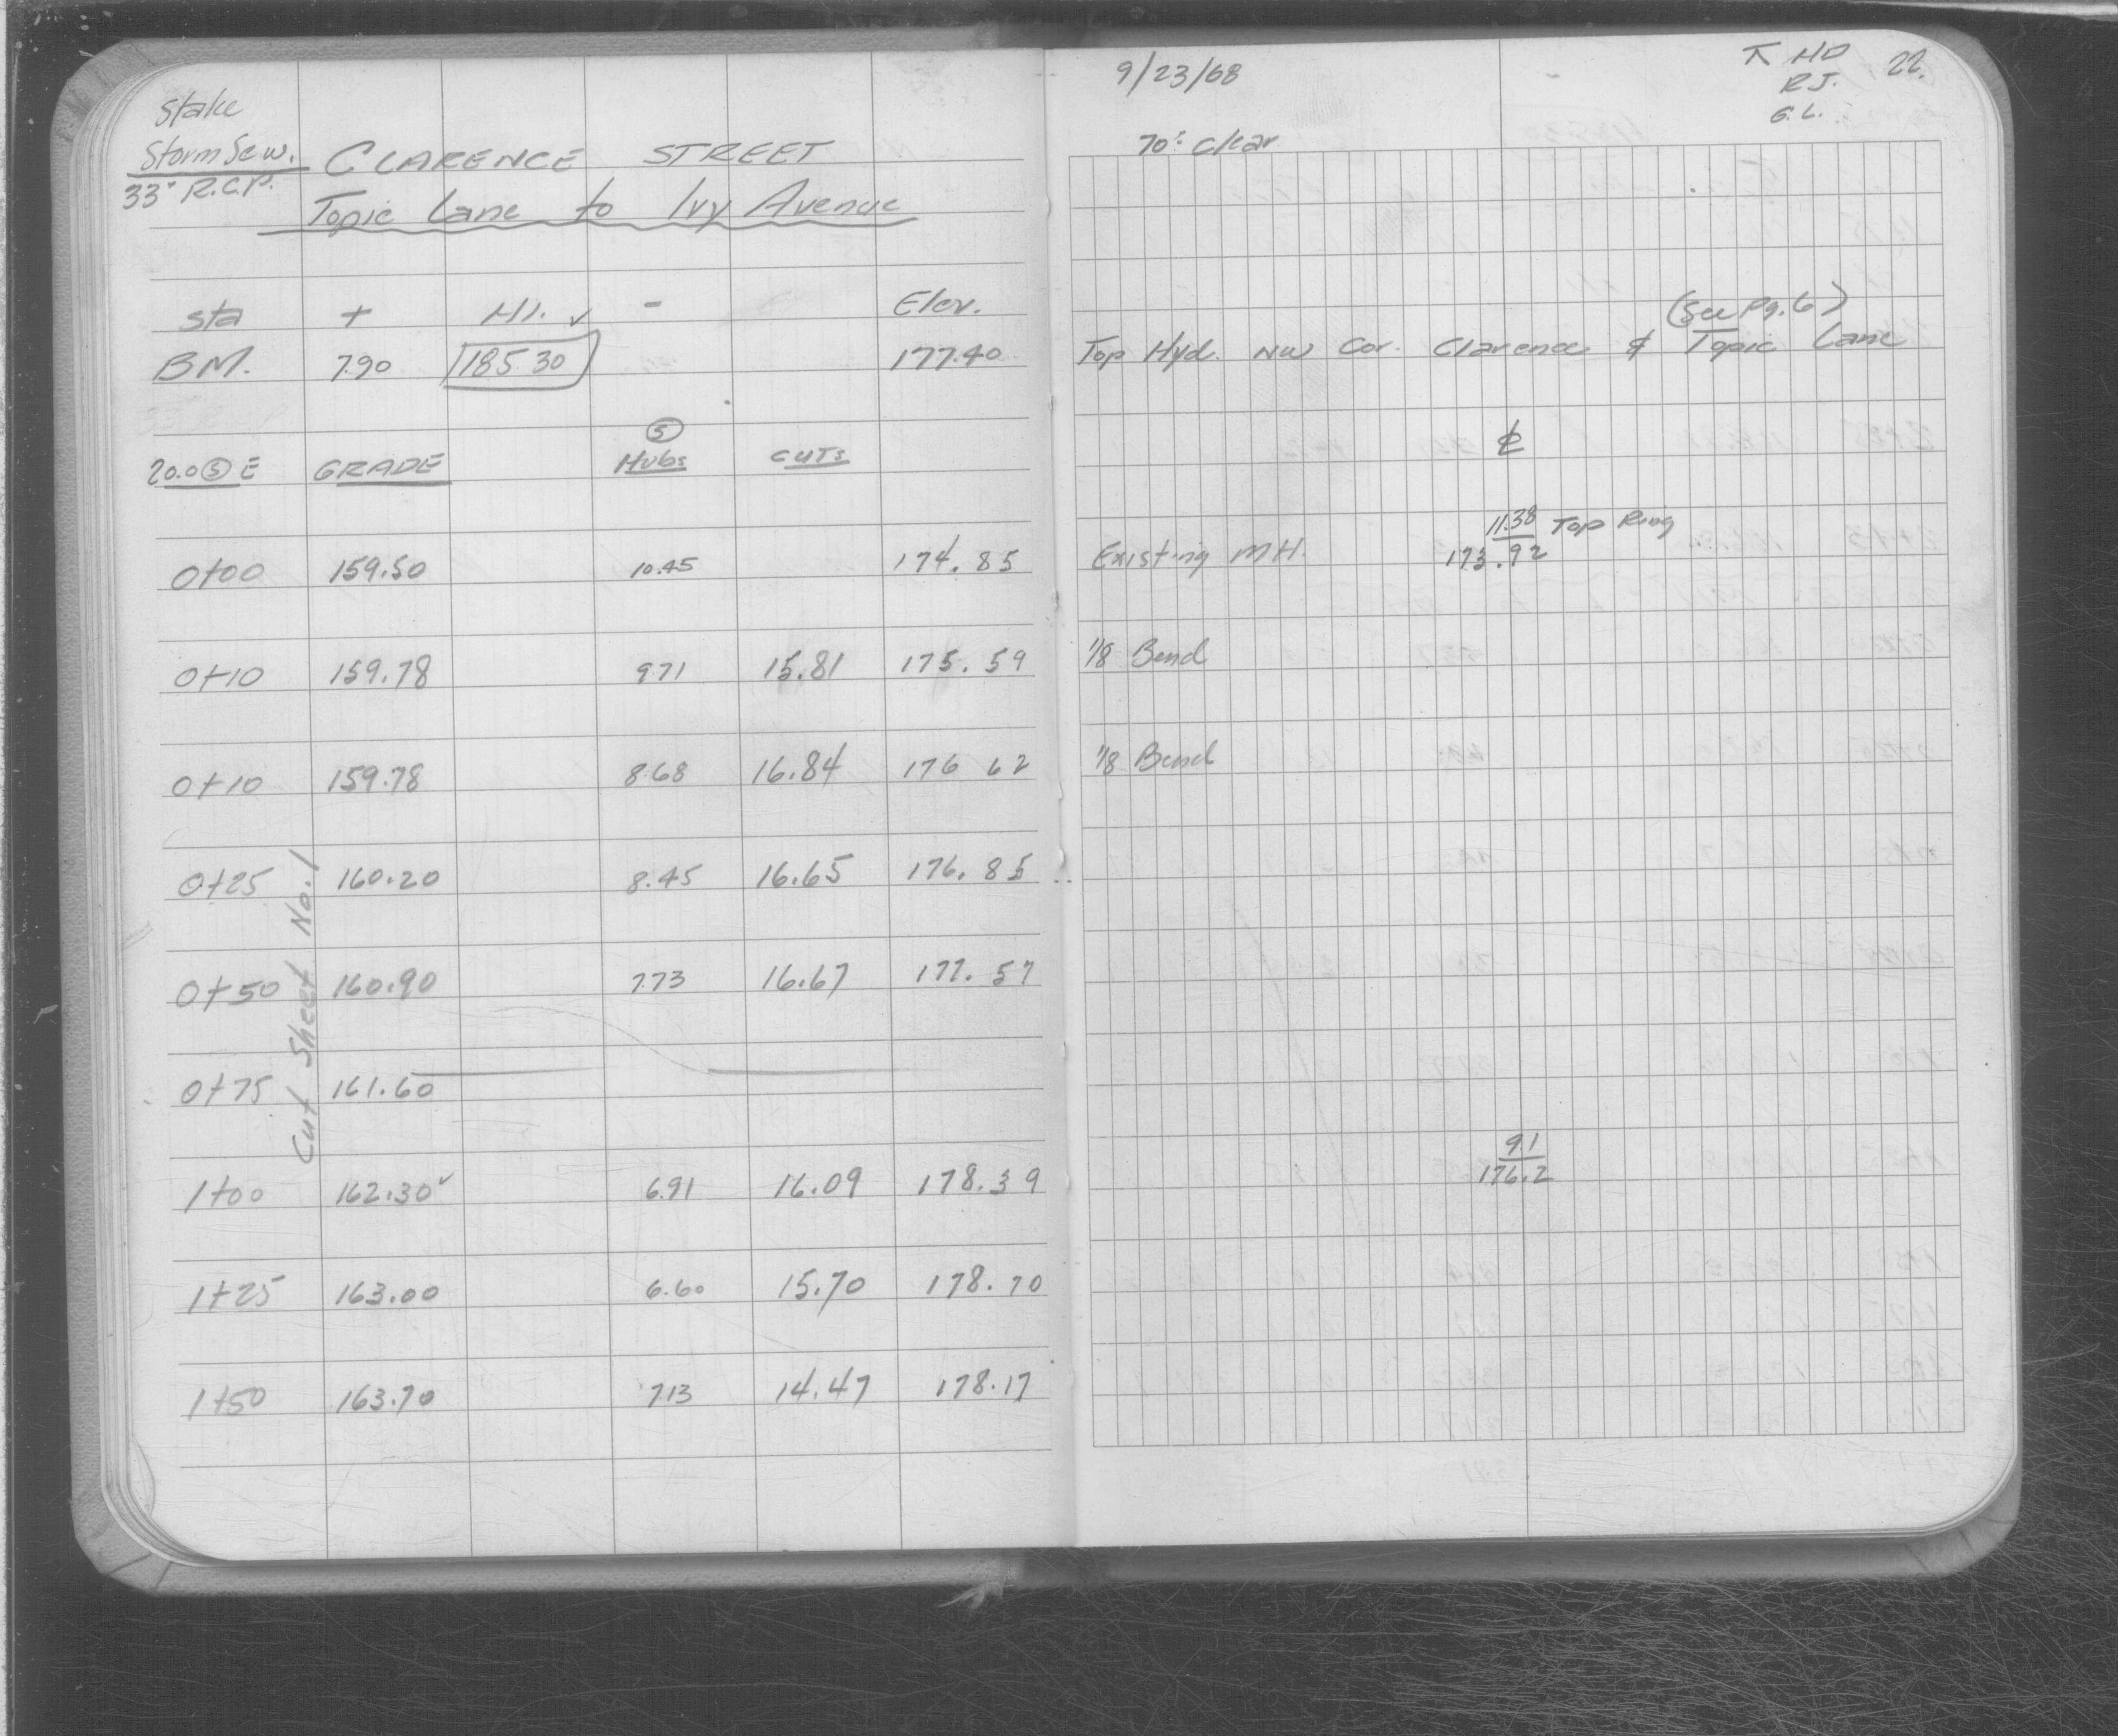 Stake
Storm Sew.
33" R.C.P.
CLARENCE STREET
Topic Lane to Ivy Avenue
Sta + H.I. ✓ - Elev.
BM. 7.90 185.30 177.40
20.0 Ⓢ E GRADE Ⓢ Hubs CUTS
0+00 159.50 10.45 174.85
0+10 159.78 9.71 15.81 175.59
0+10 159.78 8.68 16.84 176 62
0+25 160.20 8.45 16.65 176.85
0+50 160.90 7.73 16.67 177.57
0+75 161.60
1+00 162.30✓ 6.91 16.09 178.39
1+25 163.00 6.60 15.70 178.70
1+50 163.70 7.13 14.47 178.17
Cut Sheet No. 1
9/23/68
70° Clear
⊼ HD 22.
R.J.
G.L.
(See Pg. 6)
Top Hyd. NW Cor. Clarence & Topic Lane
℄
11.38 Top Ring
Existing M.H. 173.92
1/8 Bend
1/8 Bend
9.1
176.2